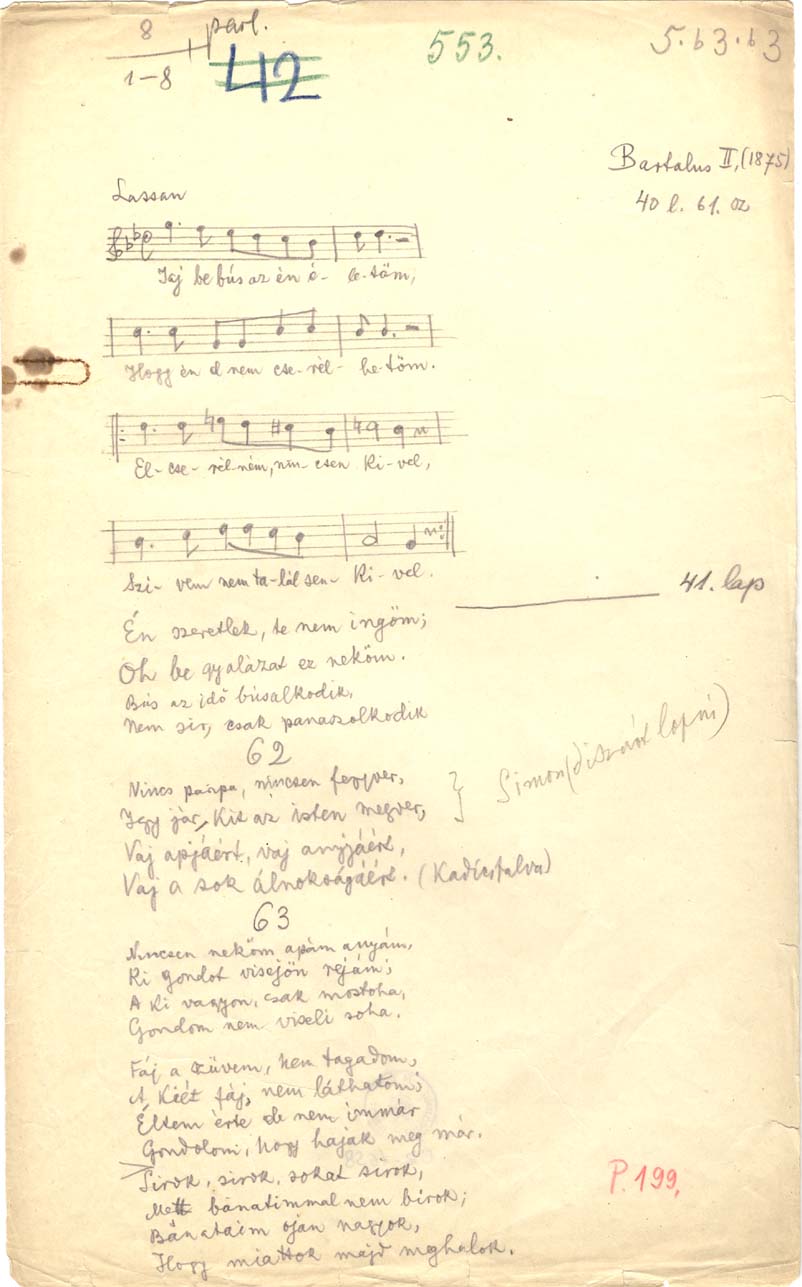 8 parl.
1-8
42
553.
5·b3·b3
Bartalus II, (1875)
40 l. 61. sz
Lassan
Jaj be bús az én é- le-töm,
Hogy én el nem cse-rél- he-töm.
El- cse- rél-ném, nin- csen ki- vel,
Szi- vem nem ta-lál sen- ki- vel.
41. lap
Én szeretlek, te nem ingöm;
Oh be gyalázat ez neköm.
Bús az idő búsalkodik,
Nem sir, csak panaszolkodik
62
Nincs párpa, nincsen fegyver,
Igy jár, kit az isten megver,
Simon (disznót lopni)
Vaj apjáért, vaj anyjáért,
Vaj a sok álnokságáért. (Kadicsfalva)
63
Nincsen neköm apám anyám,
Ki gondot visejön réjám;
A ki vagyon, csak mostoha,
Gondom nem viseli soha.
Fáj a szüvem, nem tagadom,
A kiét fáj, nem láthatom;
Éltem érte de nem immár
Gondolom, hogy haják meg már.
Sirok, sirok, sokat sirok,
Mett bánatimmal nem birok;
Bánataim oján nagyok,
Hogy miattok majd meghalok.
P. 199,